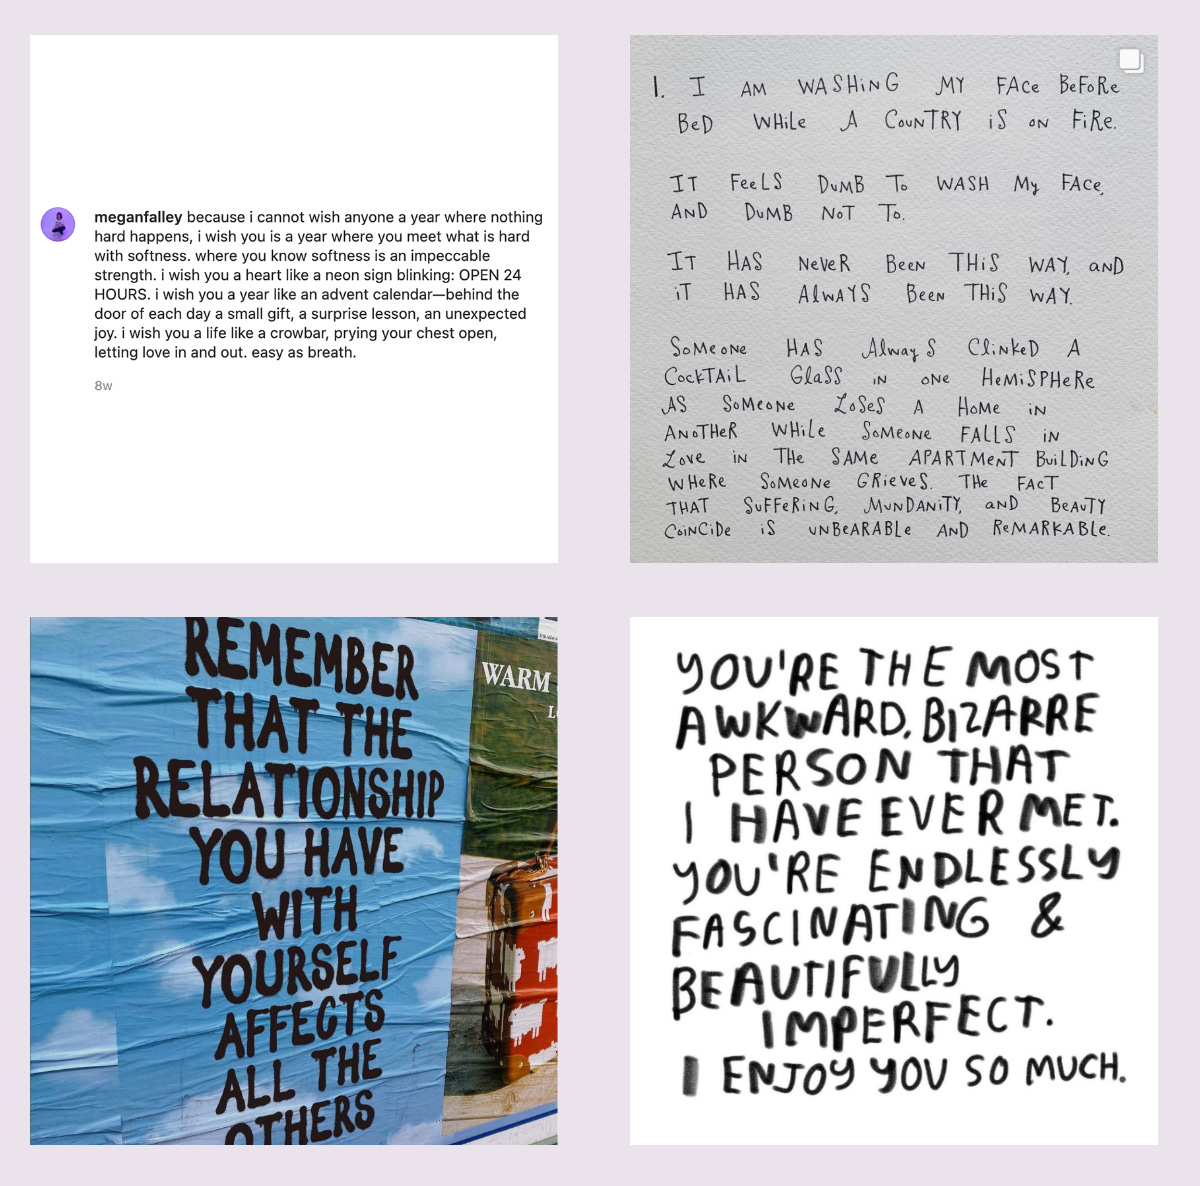 meganfalley because i cannot wish anyone a year where nothing
hard happens, i wish you is a year where you meet what is hard
with softness. where you know softness is an impeccable
strength. i wish you a heart like a neon sign blinking: OPEN 24
HOURS. i wish you a year like an advent calendar—behind the
door of each day a small gift, a surprise lesson, an unexpected
joy. i wish you a life like a crowbar, prying your chest open,
letting love in and out. easy as breath.
8w
1. I AM WASHiNG MY FACe BeFoRe
BeD WHiLe A CouNTRY iS oN FiRe.
IT FeeLS DuMB To WASH My FACe,
AND DuMB NoT To.
IT HAS NeVeR BeeN THiS WAY, aND
iT HAS AlWAYS BeeN THiS WAY.
SoMeoNe HAS AlwayS CliNKeD A
CocKTAiL GlaSS iN oNe HeMiSPHeRe
AS SoMeoNe LoSeS A HoMe iN
ANoTHeR WHiLe SoMeoNe FALLS iN
Love iN THe SAMe APARTMeNT BuiLDiNG
WHeRe SoMeoNe GRieveS. THe FAcT
THAT SuFFeRiNG, MuNDANiTY, aND BeAuTY
CoiNCiDe iS uNBeARABLe AND ReMARKABLe.
REMEMBER
THAT THE
RELATIONSHIP
YOU HAVE
WITH
YOURSELF
AFFECTS
ALL THE
OTHERS
WARM
YOU'RE THE MOST
AWKWARD, BIZARRE
PERSON THAT
I HAVE EVER MET.
YOU'RE ENDLESSLY
FASCINATING &
BEAUTIFULLY
IMPERFECT.
I ENJOY YOU SO MUCH.